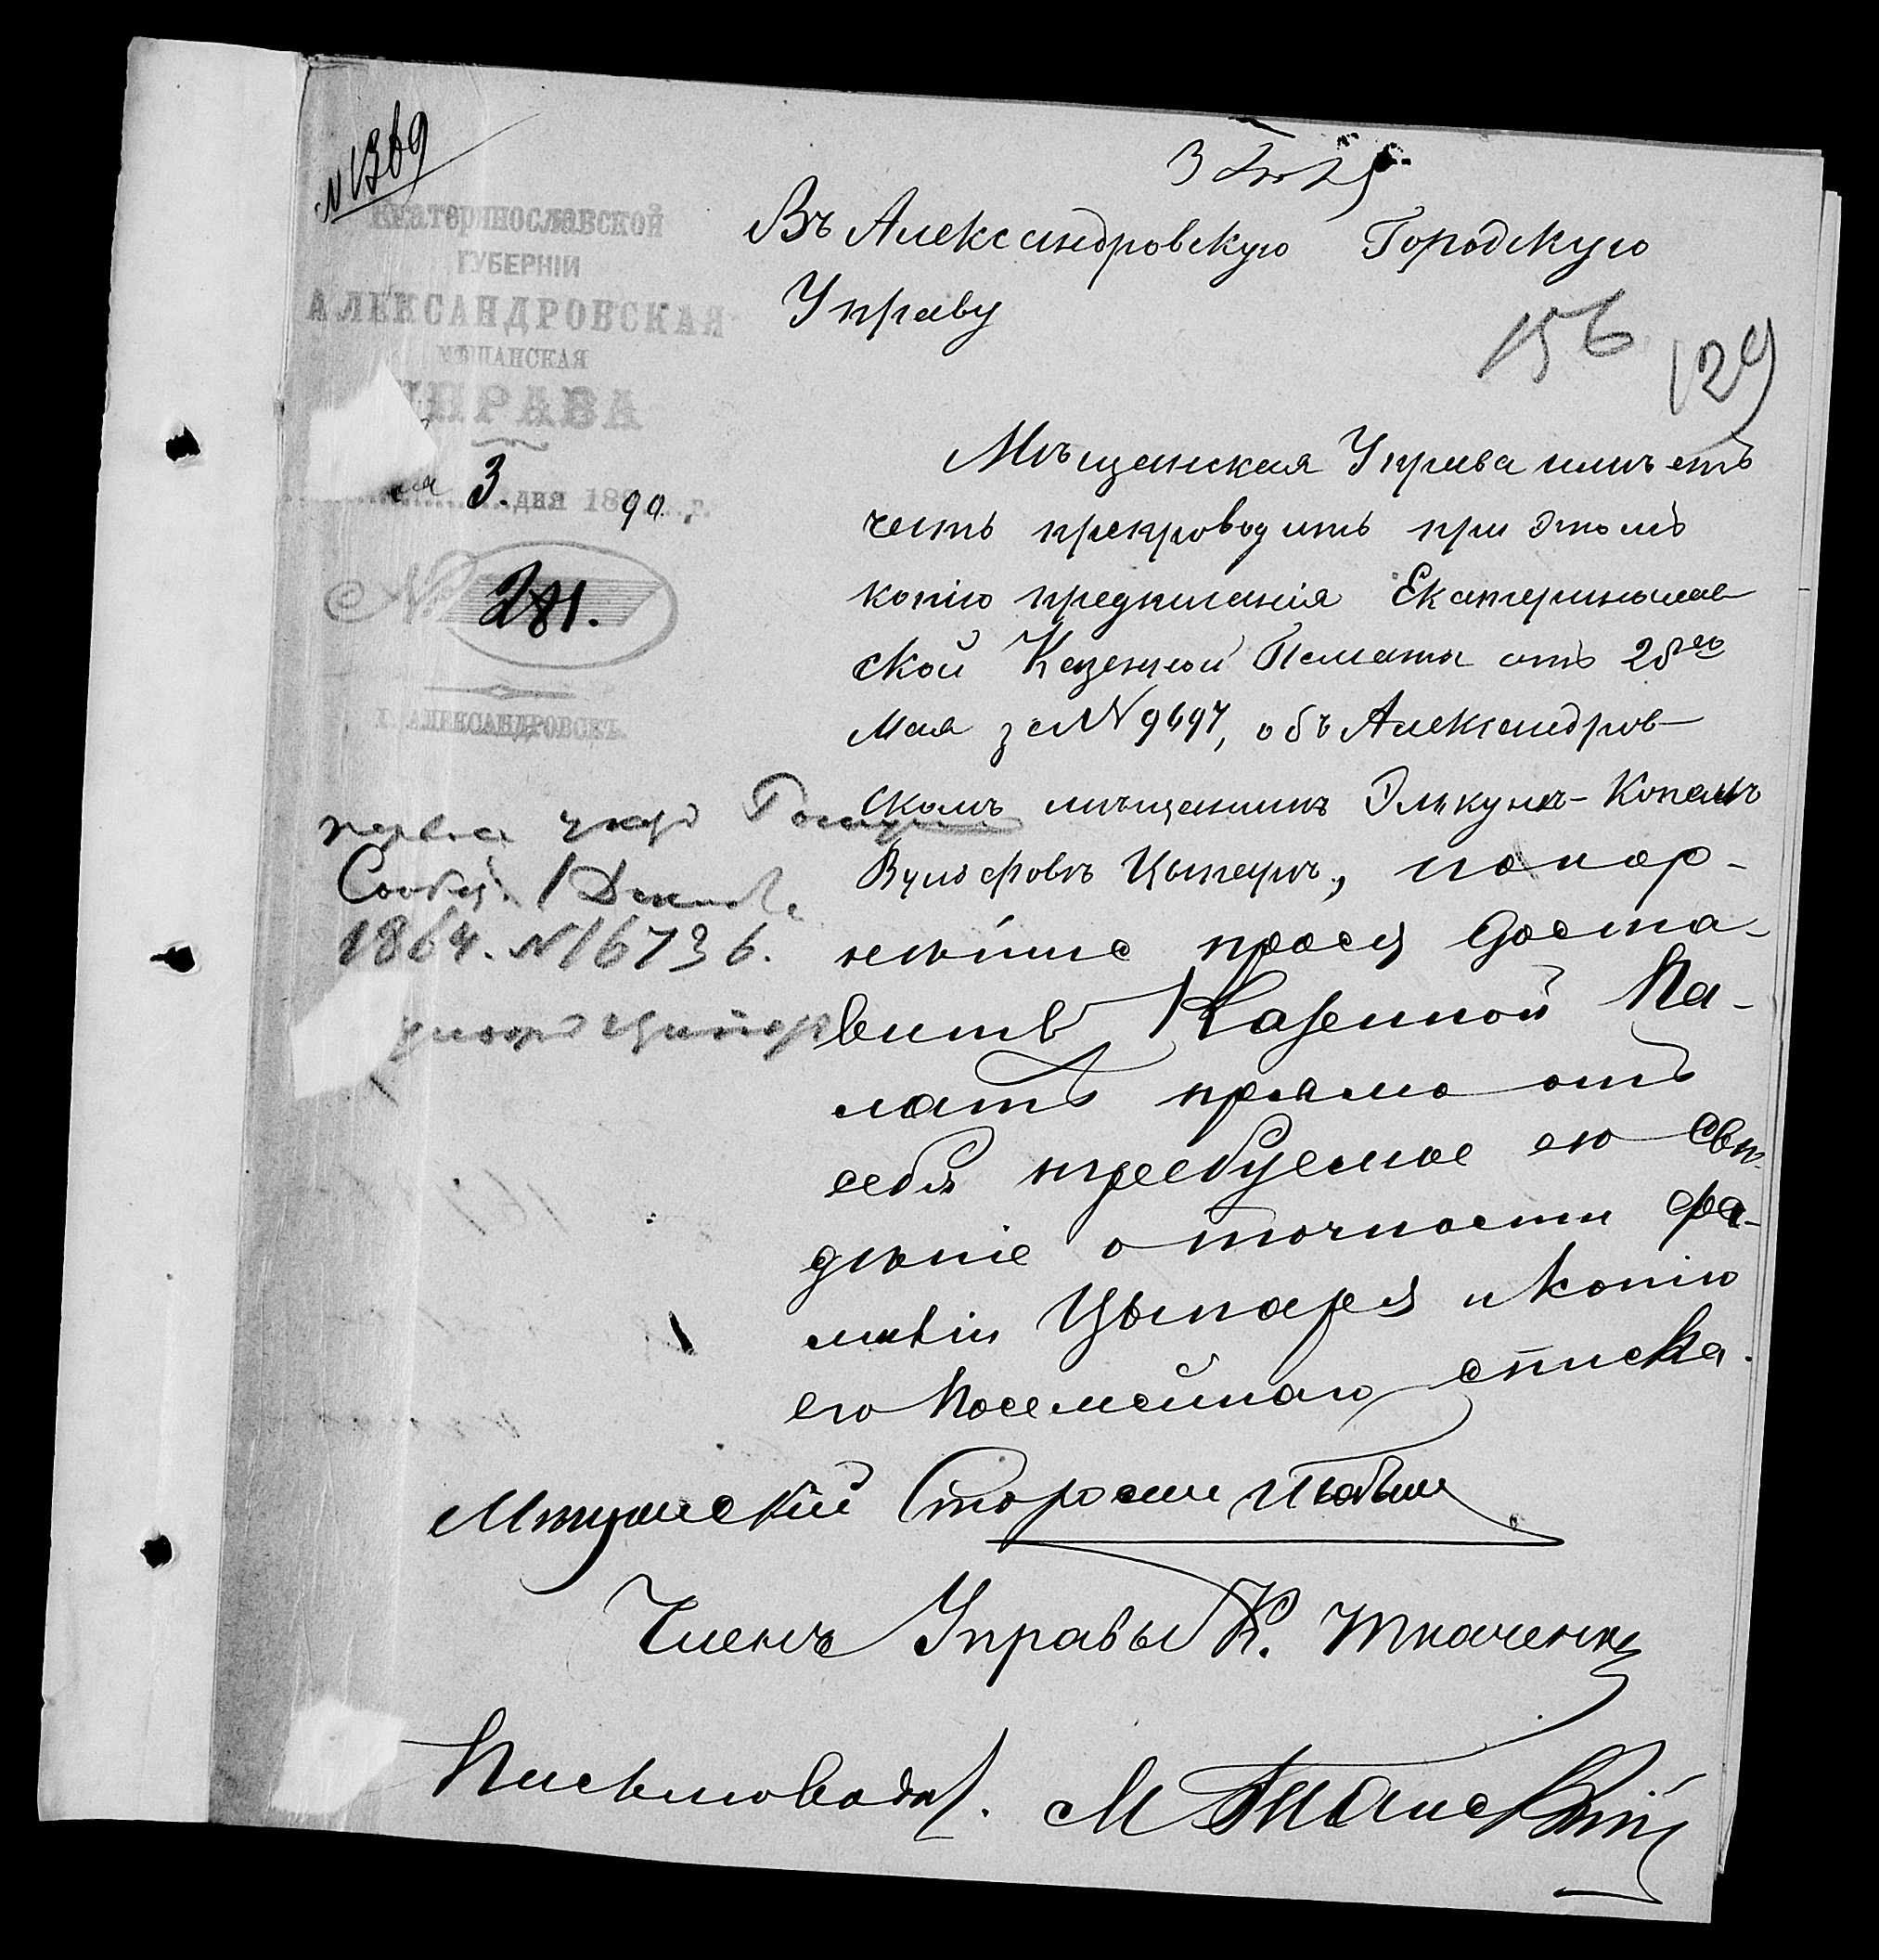 № 1369
Екатеринославской
ГУБЕРНІИ
АЛЕКСАНДРОВСКАЯ
МѢЩАНСКАЯ
УПРАВА
3. дня 1890 г.
№ 281.
Г. АЛЕКСАНДРОВСКЪ.
Въ Александровскую Городскую
Управу
156
129
Мѣщанская Управа имѣетъ
честь препроводить при этомъ
копію предписанія Екатеринослав
ской Казенной Палаты отъ 28го
Мая за № 9697, объ Александров-
скомъ мѣщанинѣ Элькунѣ-Копелѣ
Вульфовѣ Цыпарѣ, покор-
нѣйше прося доста-
вить Казенной Па-
латѣ прямо отъ
себя требуемое ею свѣ-
дѣніе о точности фа-
миліи Цыпаря и копію
его посемейнаго списка.
1864. № 16736.
Мѣщанскій Староста
Членъ Управы К. Ткаченко
Письмоводит.